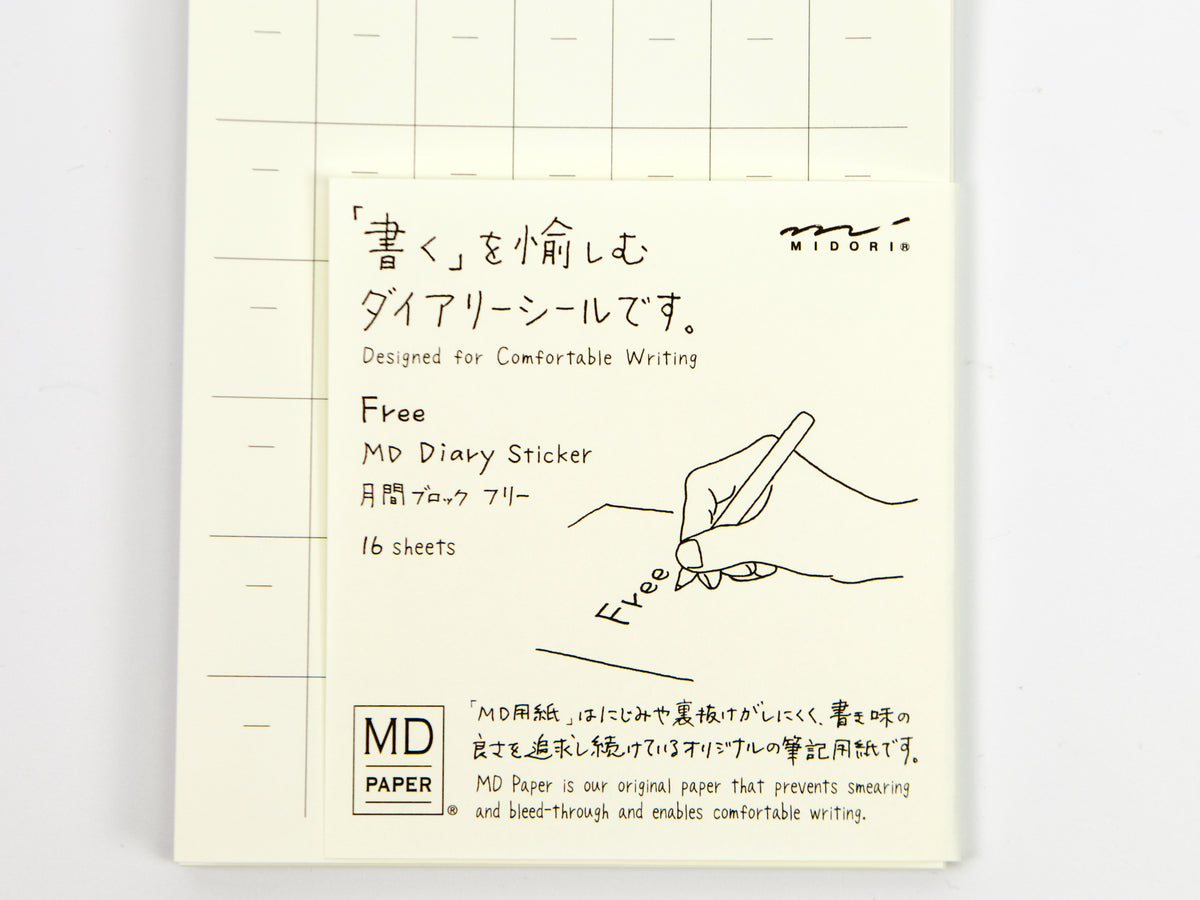 「書く」を愉しむ
ダイアリーシールです。
Designed for Comfortable Writing
mí
MIDORI®
Free
MD Diary Sticker
月間ブロック フリー
16 sheets
Free
MD
PAPER
®
「MD用紙」はにじみや裏抜けがしにくく、書き味の
良さを追求し続けているオリジナルの筆記用紙です。
MD Paper is our original paper that prevents smearing
and bleed-through and enables comfortable writing.